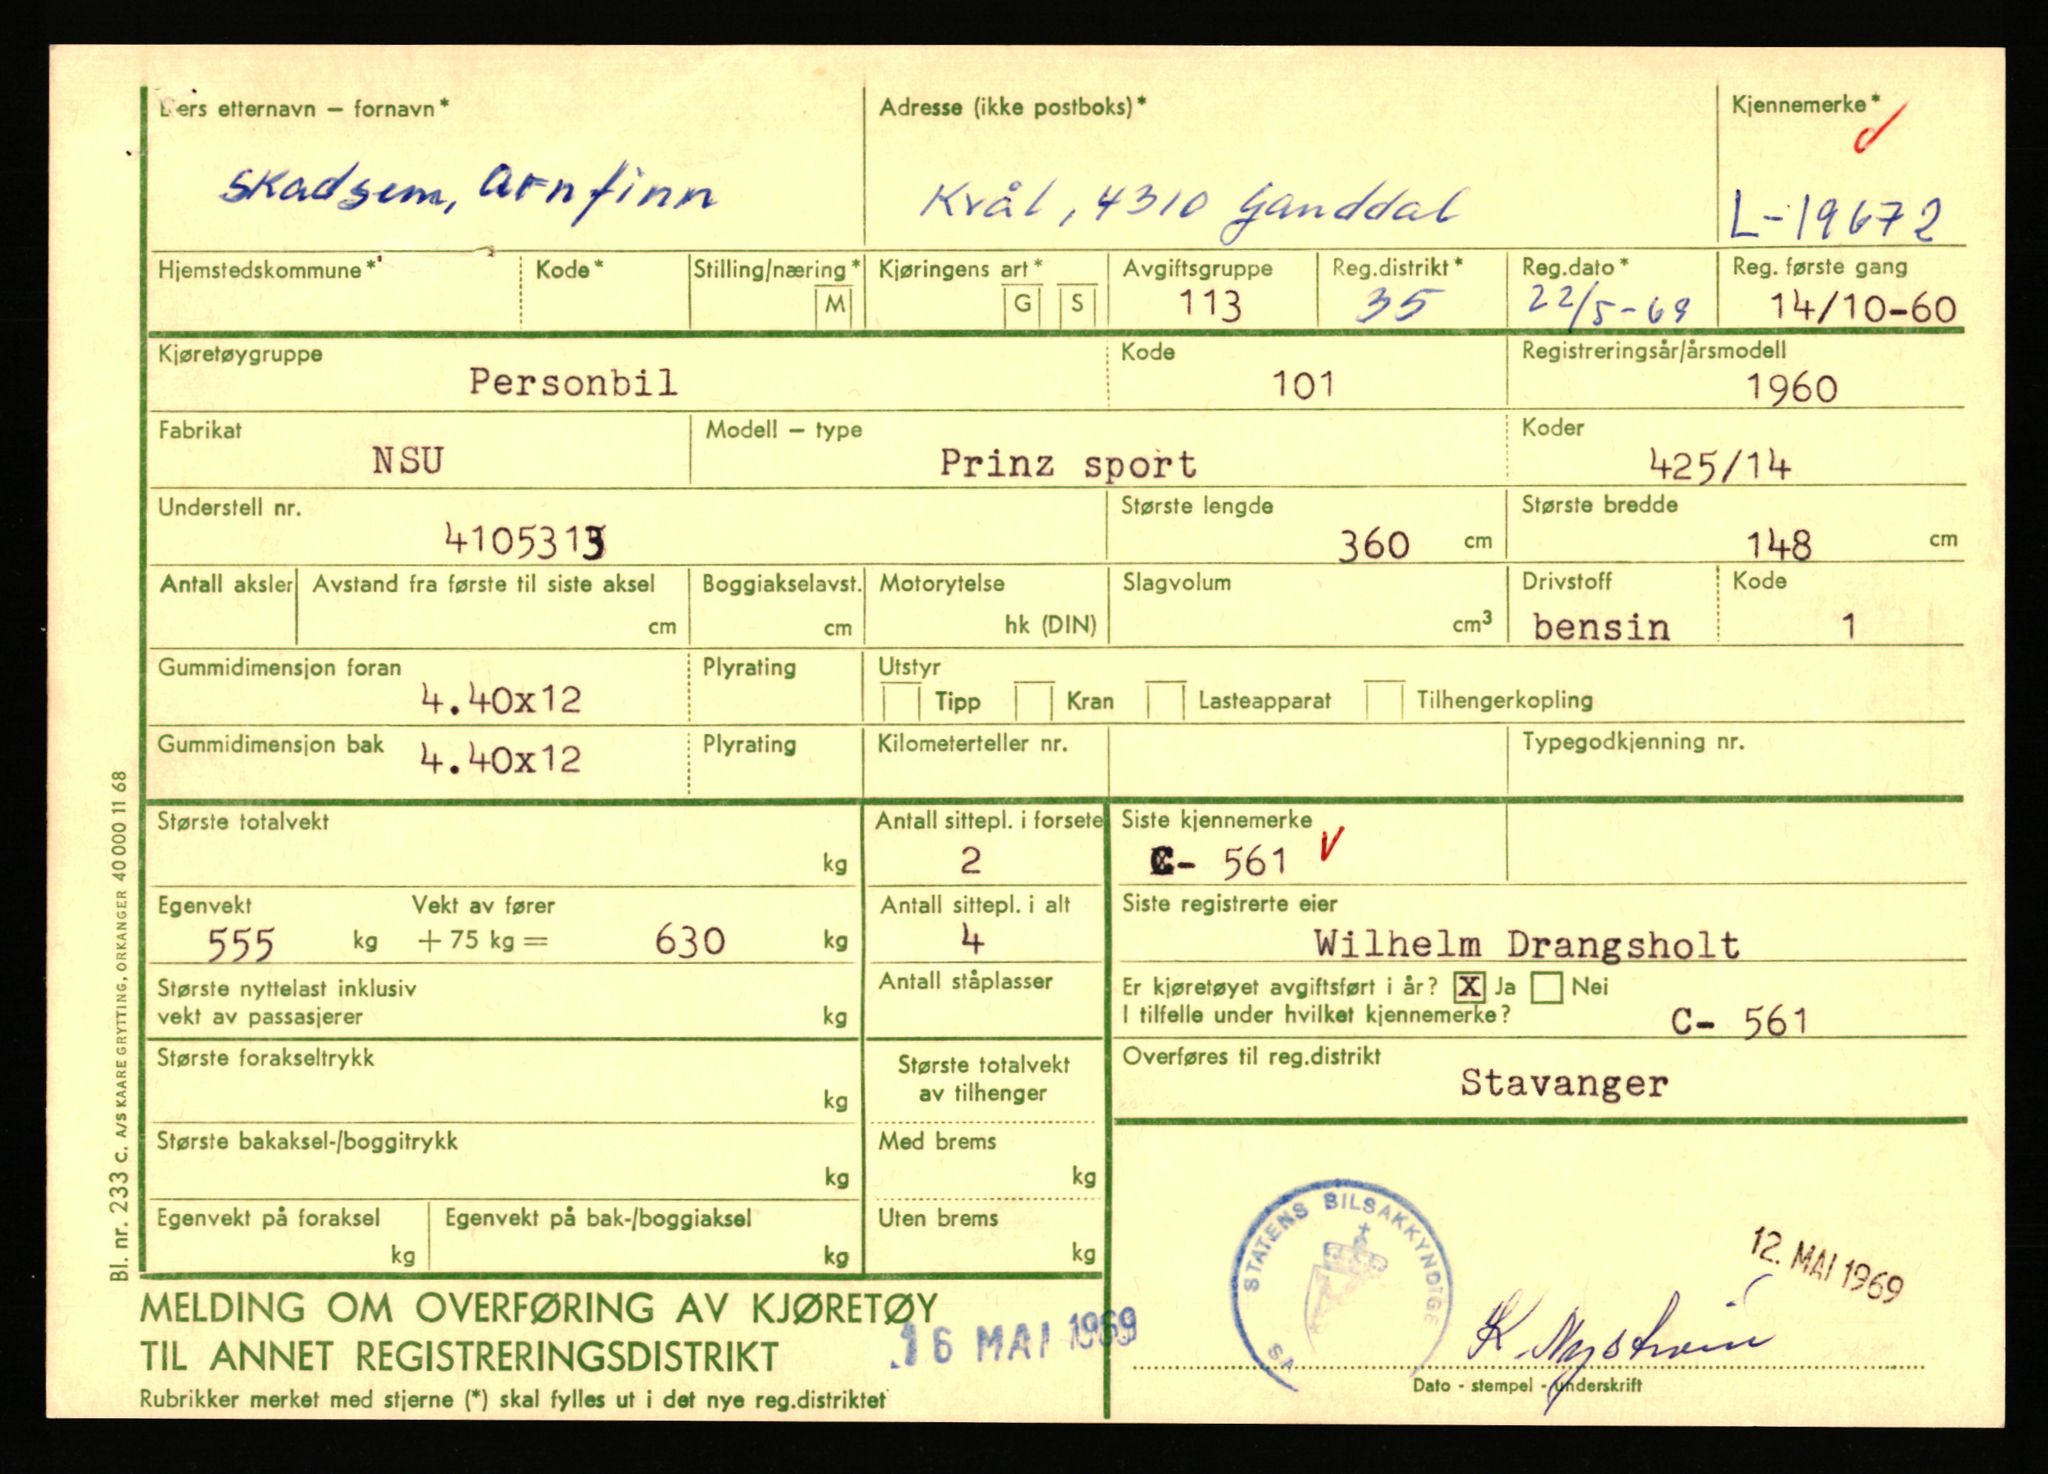 Eiers etternavn – fornavn*
Adresse (ikke postboks)*
Kjennemerke*
Skadsem, Arnfinn
Kvål, 4310 Ganddal
L-19672
Hjemstedskommune*
Kode*
Stilling/næring*
M
Kjøringens art*
G S
Avgiftsgruppe
113
Reg.distrikt*
35
Reg.dato*
22/5-69
Reg. første gang
14/10-60
Kjøretøygruppe
Personbil
Kode
101
Registreringsår/årsmodell
1960
Fabrikat
NSU
Modell – type
Prinz sport
Koder
425/14
Understell nr.
4105313
Største lengde
360 cm
Største bredde
148 cm
Antall aksler
Avstand fra første til siste aksel
cm
Boggiakselavst.
cm
Motorytelse
hk (DIN)
Slagvolum
cm³
Drivstoff
bensin
Kode
1
Gummidimensjon foran
4.40x12
Plyrating
Utstyr
Tipp Kran Lasteapparat Tilhengerkopling
Gummidimensjon bak
4.40x12
Plyrating
Kilometerteller nr.
Typegodkjenning nr.
Største totalvekt
kg
Antall sittepl. i forsete
2
Siste kjennemerke
C- 561
Egenvekt
555 kg
Vekt av fører
+ 75 kg = 630 kg
Antall sittepl. i alt
4
Siste registrerte eier
Wilhelm Drangsholt
Største nyttelast inklusiv
vekt av passasjerer
kg
Antall ståplasser
Er kjøretøyet avgiftsført i år? X Ja Nei
I tilfelle under hvilket kjennemerke? C- 561
Største forakseltrykk
kg
Største totalvekt
av tilhenger
Overføres til reg.distrikt
Stavanger
Største bakaksel-/boggitrykk
kg
Med brems
kg
Egenvekt på foraksel
kg
Egenvekt på bak-/boggiaksel
kg
Uten brems
kg
STATENS BILSAKKYNDIGE
SA
12. MAI 1969
K. Nystrøm
Dato - stempel - underskrift
MELDING OM OVERFØRING AV KJØRETØY
TIL ANNET REGISTRERINGSDISTRIKT
16 MAI 1969
Rubrikker merket med stjerne (*) skal fylles ut i det nye reg.distriktet
Bl. nr. 233 C. A/S KAARE GRYTTING, ORKANGER 40 000 11 68